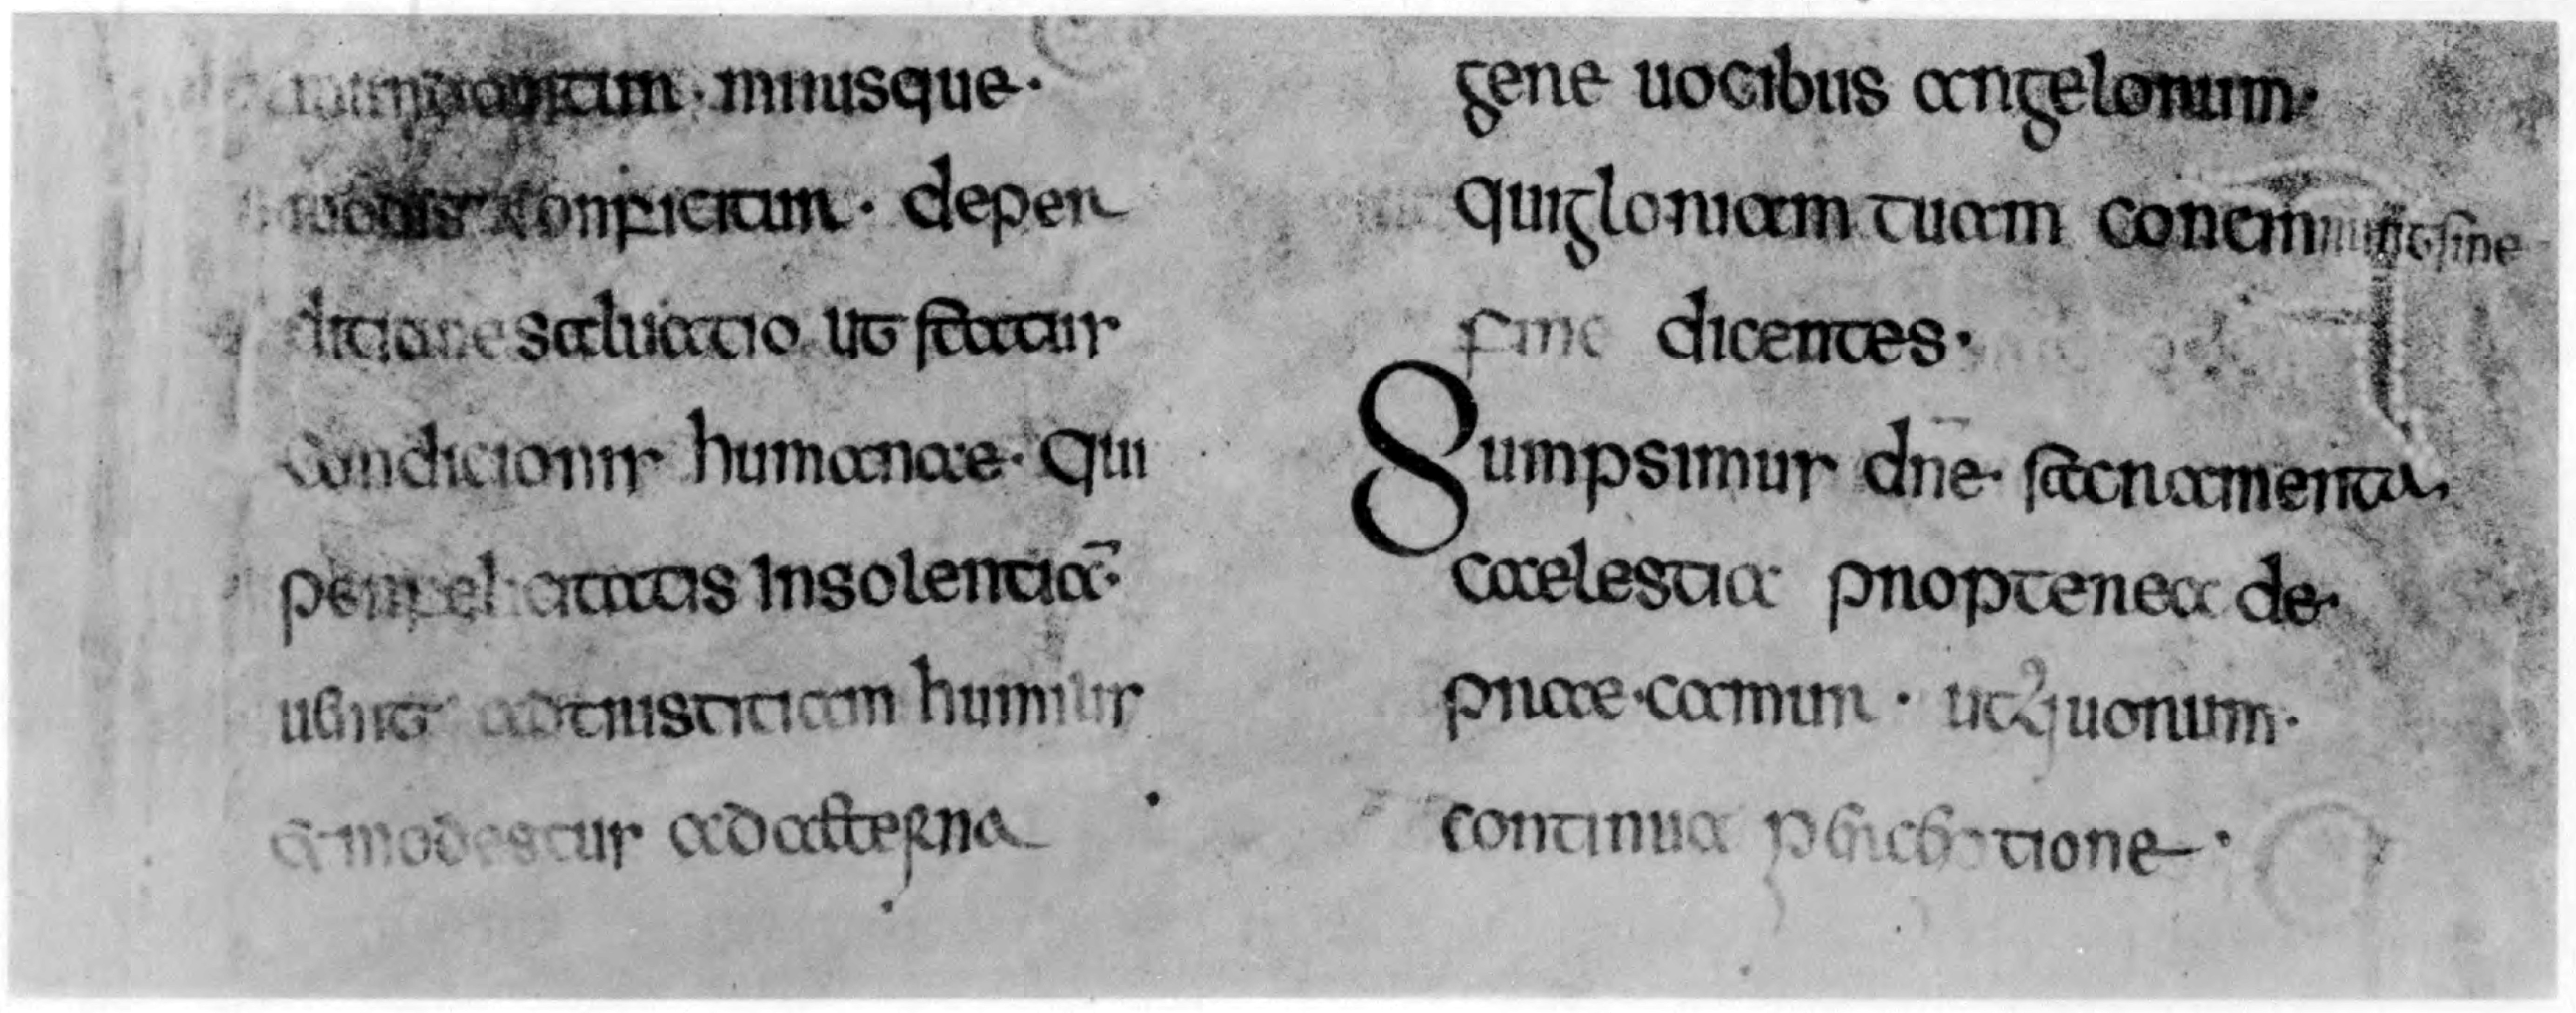 mirusque
modis conficitur · de per
ditione saluatio ut status
condicionis humanae · Qui
per  aetatis Insolentiā·
 ad tristitiam humilis
& modestus ad aeterna
gere uocibus angelorum·
qui gloriam tuam concinnunt sine
sine dicentes·
Sumpsimus dn̄e· sacramenta
caelestia propterea de
prae·camur · ut quorum·
continua tione·